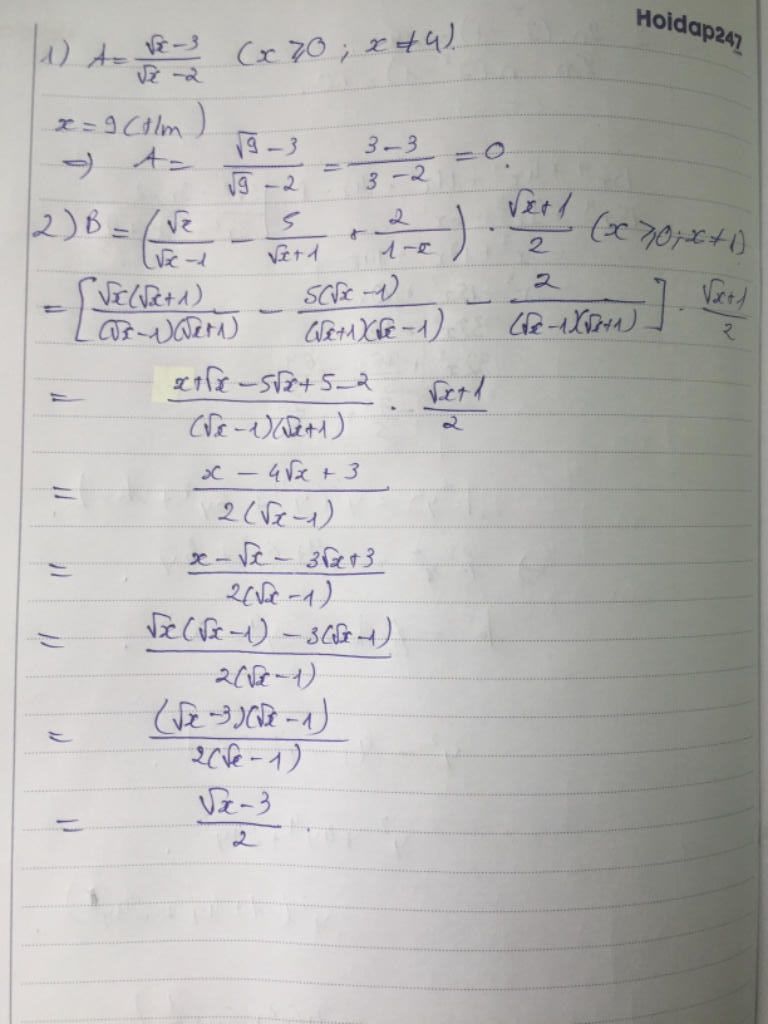 Hoidap247
1) A = (√x - 3)/(√x - 2) (x ⩾ 0 ; x ≠ 4).
x = 9 (t/m)
=> A = (√9 - 3)/(√9 - 2) = (3 - 3)/(3 - 2) = 0.
2) B = (√x/(√x - 1) - 5/(√x + 1) + 2/(1 - x)) · (√x + 1)/2 (x ⩾ 0 ; x ≠ 1)
= [√x(√x + 1)/((√x - 1)(√x + 1)) - 5(√x - 1)/((√x + 1)(√x - 1)) - 2/((√x - 1)(√x + 1))] · (√x + 1)/2
= (x + √x - 5√x + 5 - 2)/((√x - 1)(√x + 1)) · (√x + 1)/2
= (x - 4√x + 3)/(2(√x - 1))
= (x - √x - 3√x + 3)/(2(√x - 1))
= (√x(√x - 1) - 3(√x - 1))/(2(√x - 1))
= ((√x - 3)(√x - 1))/(2(√x - 1))
= (√x - 3)/2 .